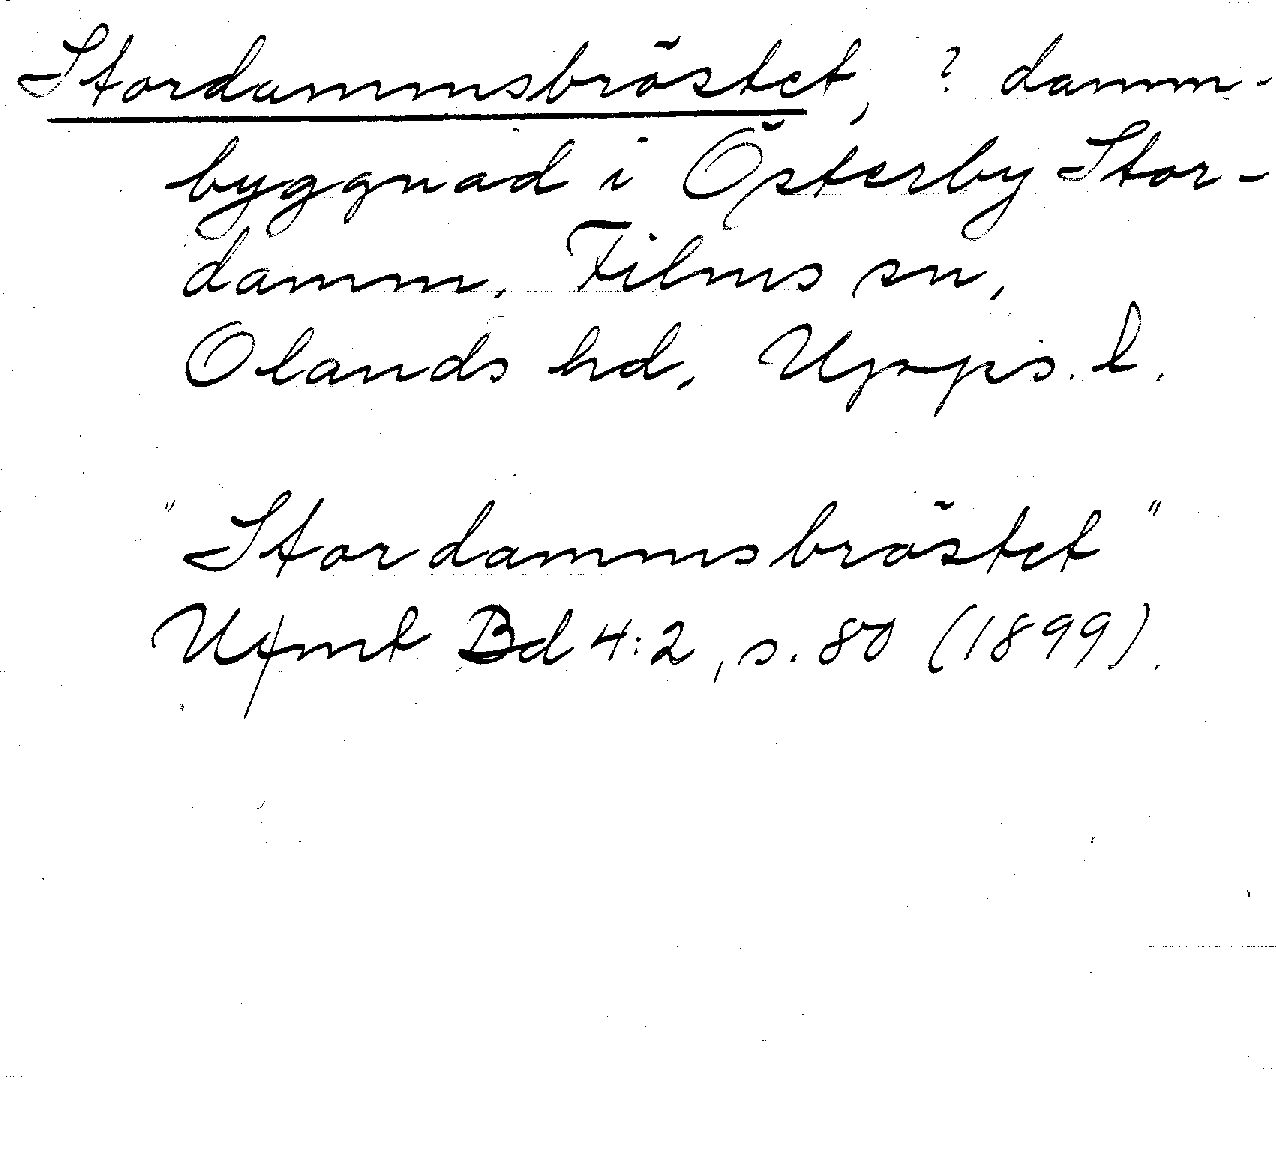 Stordammsbröstet, ? damm-
byggnad i Österby Stor-
damm. Films sn,
Olands hd, Upps. l.
"Stordammsbröstet"
Ufmt Bd 4:2, s. 80 (1899).